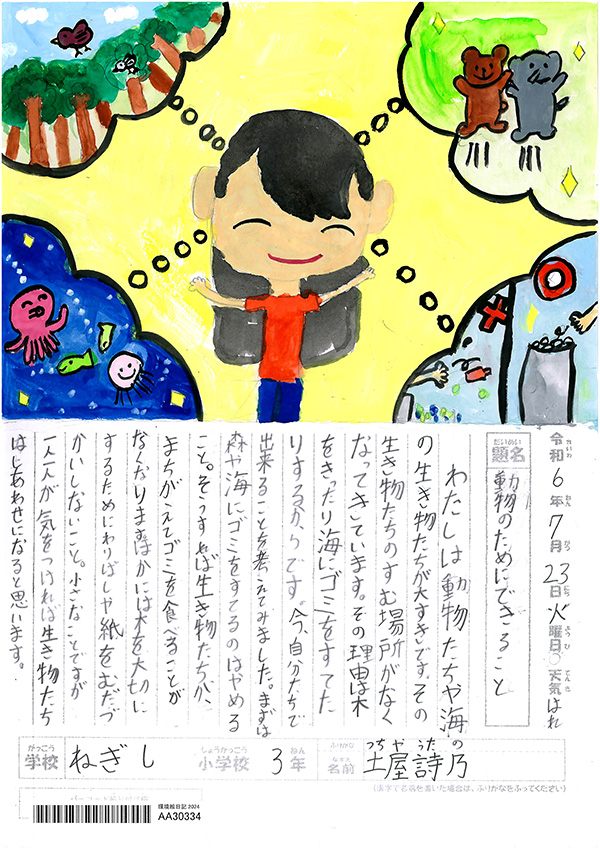 令和6年7月23日火曜日 天気はれ
れいわ ねん がつ にち ようび てんき
だいめい
題名 動物のためにできること
わたしは動物たちや海
の生き物たちが大すきです。その
生き物たちのすむ場所がなく
なってきています。その理由は木
をきったり海にゴミをすてた
りするからです。今、自分たちで
出来ることを考えてみました。まずは
森や海にゴミをすてるのはやめる
こと。そうすれば生き物たちが、
まちがえてゴミを食べることが
なくなります。ほかには木を大切に
するためにわりばしや紙をむだづ
かいしないこと。小さなことですが
一人一人が気をつければ生き物たち
はしあわせになると思います。
がっこう しょうがっこう ねん
学校 ねぎし 小学校 3年
ふりがな つちや うたの
なまえ
名前 土屋詩乃
(漢字で名前を書いた場合は、ふりがなをふってください)
環境絵日記 2024
AA30334